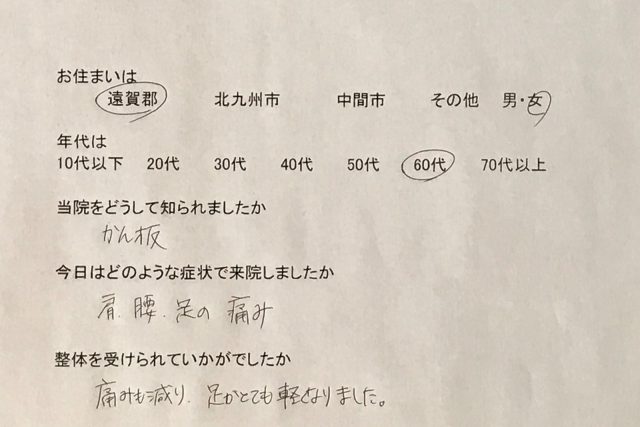 お住まいは
遠賀郡 北九州市 中間市 その他 男・女
年代は
10代以下 20代 30代 40代 50代 60代 70代以上
当院をどうして知られましたか
かん板
今日はどのような症状で来院しましたか
肩、腰、足の痛み
整体を受けられていかがでしたか
痛みも減り、足がとても軽くなりました。